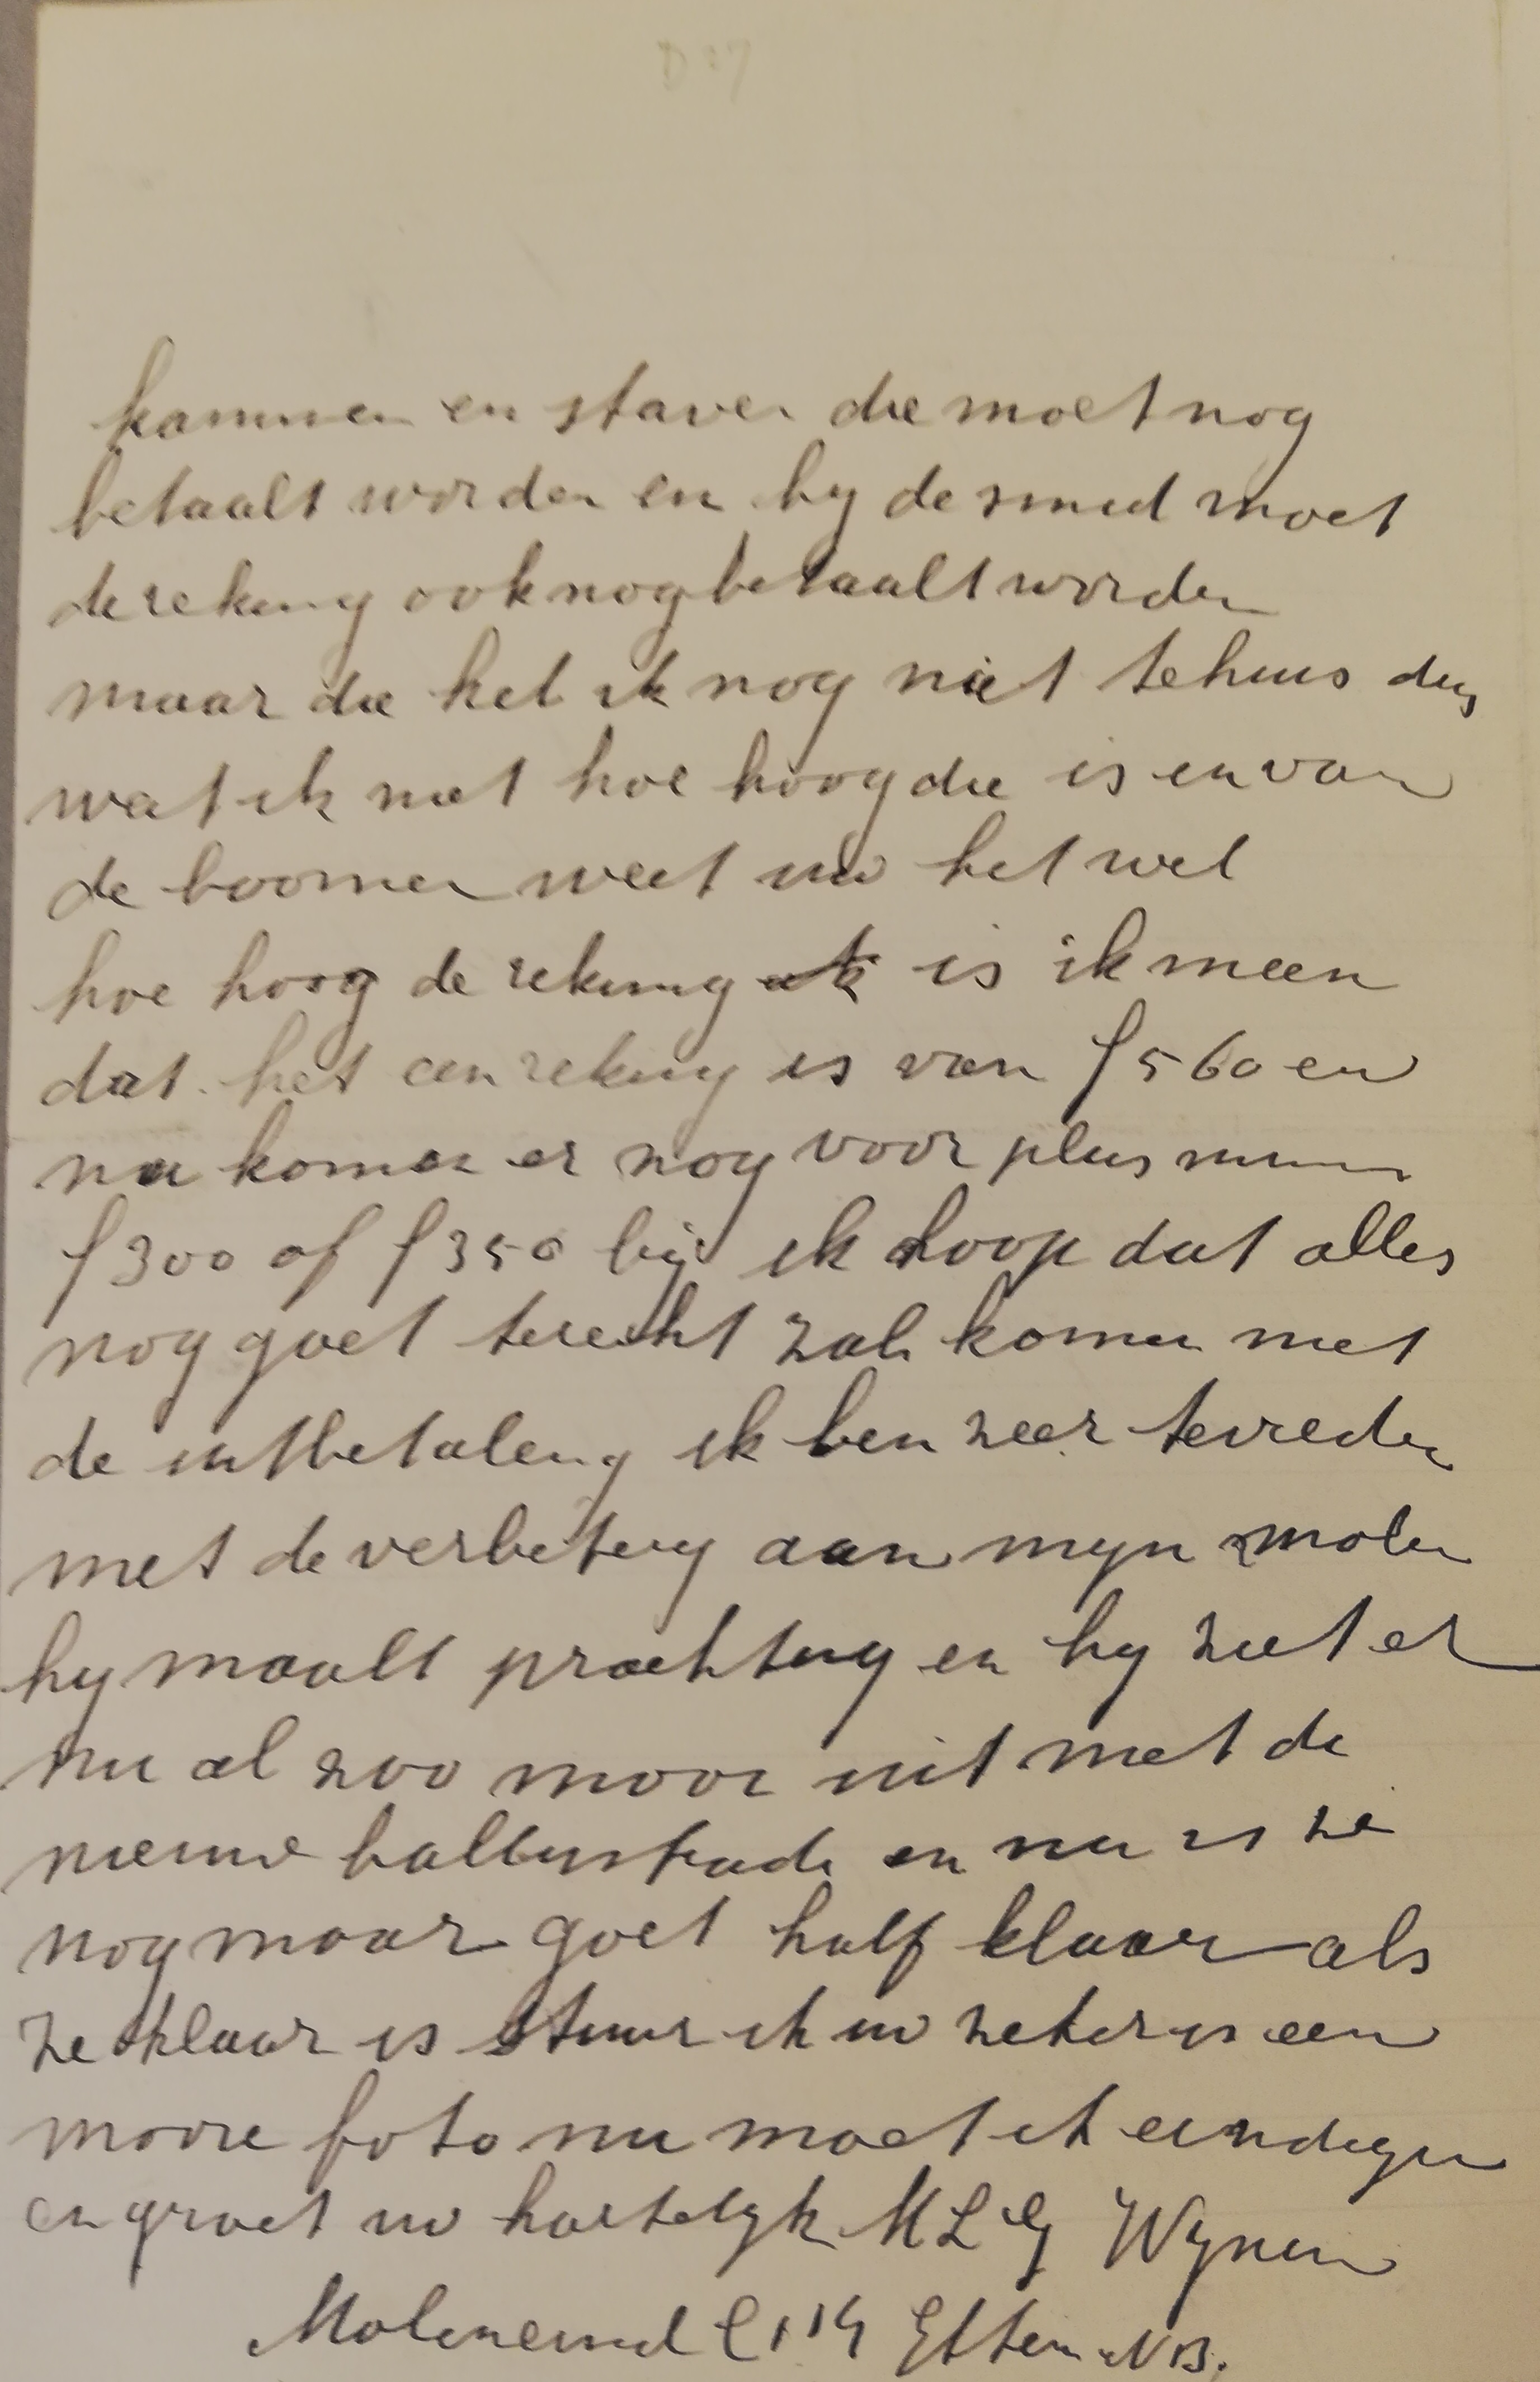 kammen en staven die moet nog
betaalt worden en by de smid moet
de rekeng ook nog betaalt worden
maar die heb ik nog niet tehuis dus
wat ik niet hoe hoog die is en van
de boomen weet uw het wel
hoe hoog de rekening is ik meen
dat het een rekeng is van f 560 en
nu komen er nog voor plus minus
f 300 of f 350 bij ik hoop dat alles
nog goet terecht zal komen met
de uitbetaleng ik ben zeer tevreden
met de verbetereg aan myn molen
hy maalt prachteg en hy ziet er
nu al zoo mooi uit met de
nieuwe ballustrade en nu is ze
nog maar goet half klaar als
ze klaar is stuur ik uw zeker is een
mooie foto nu moet ik eindigen
en groet uw hartelyk M L G Wynen
Moleneind C 114 Etten N B.